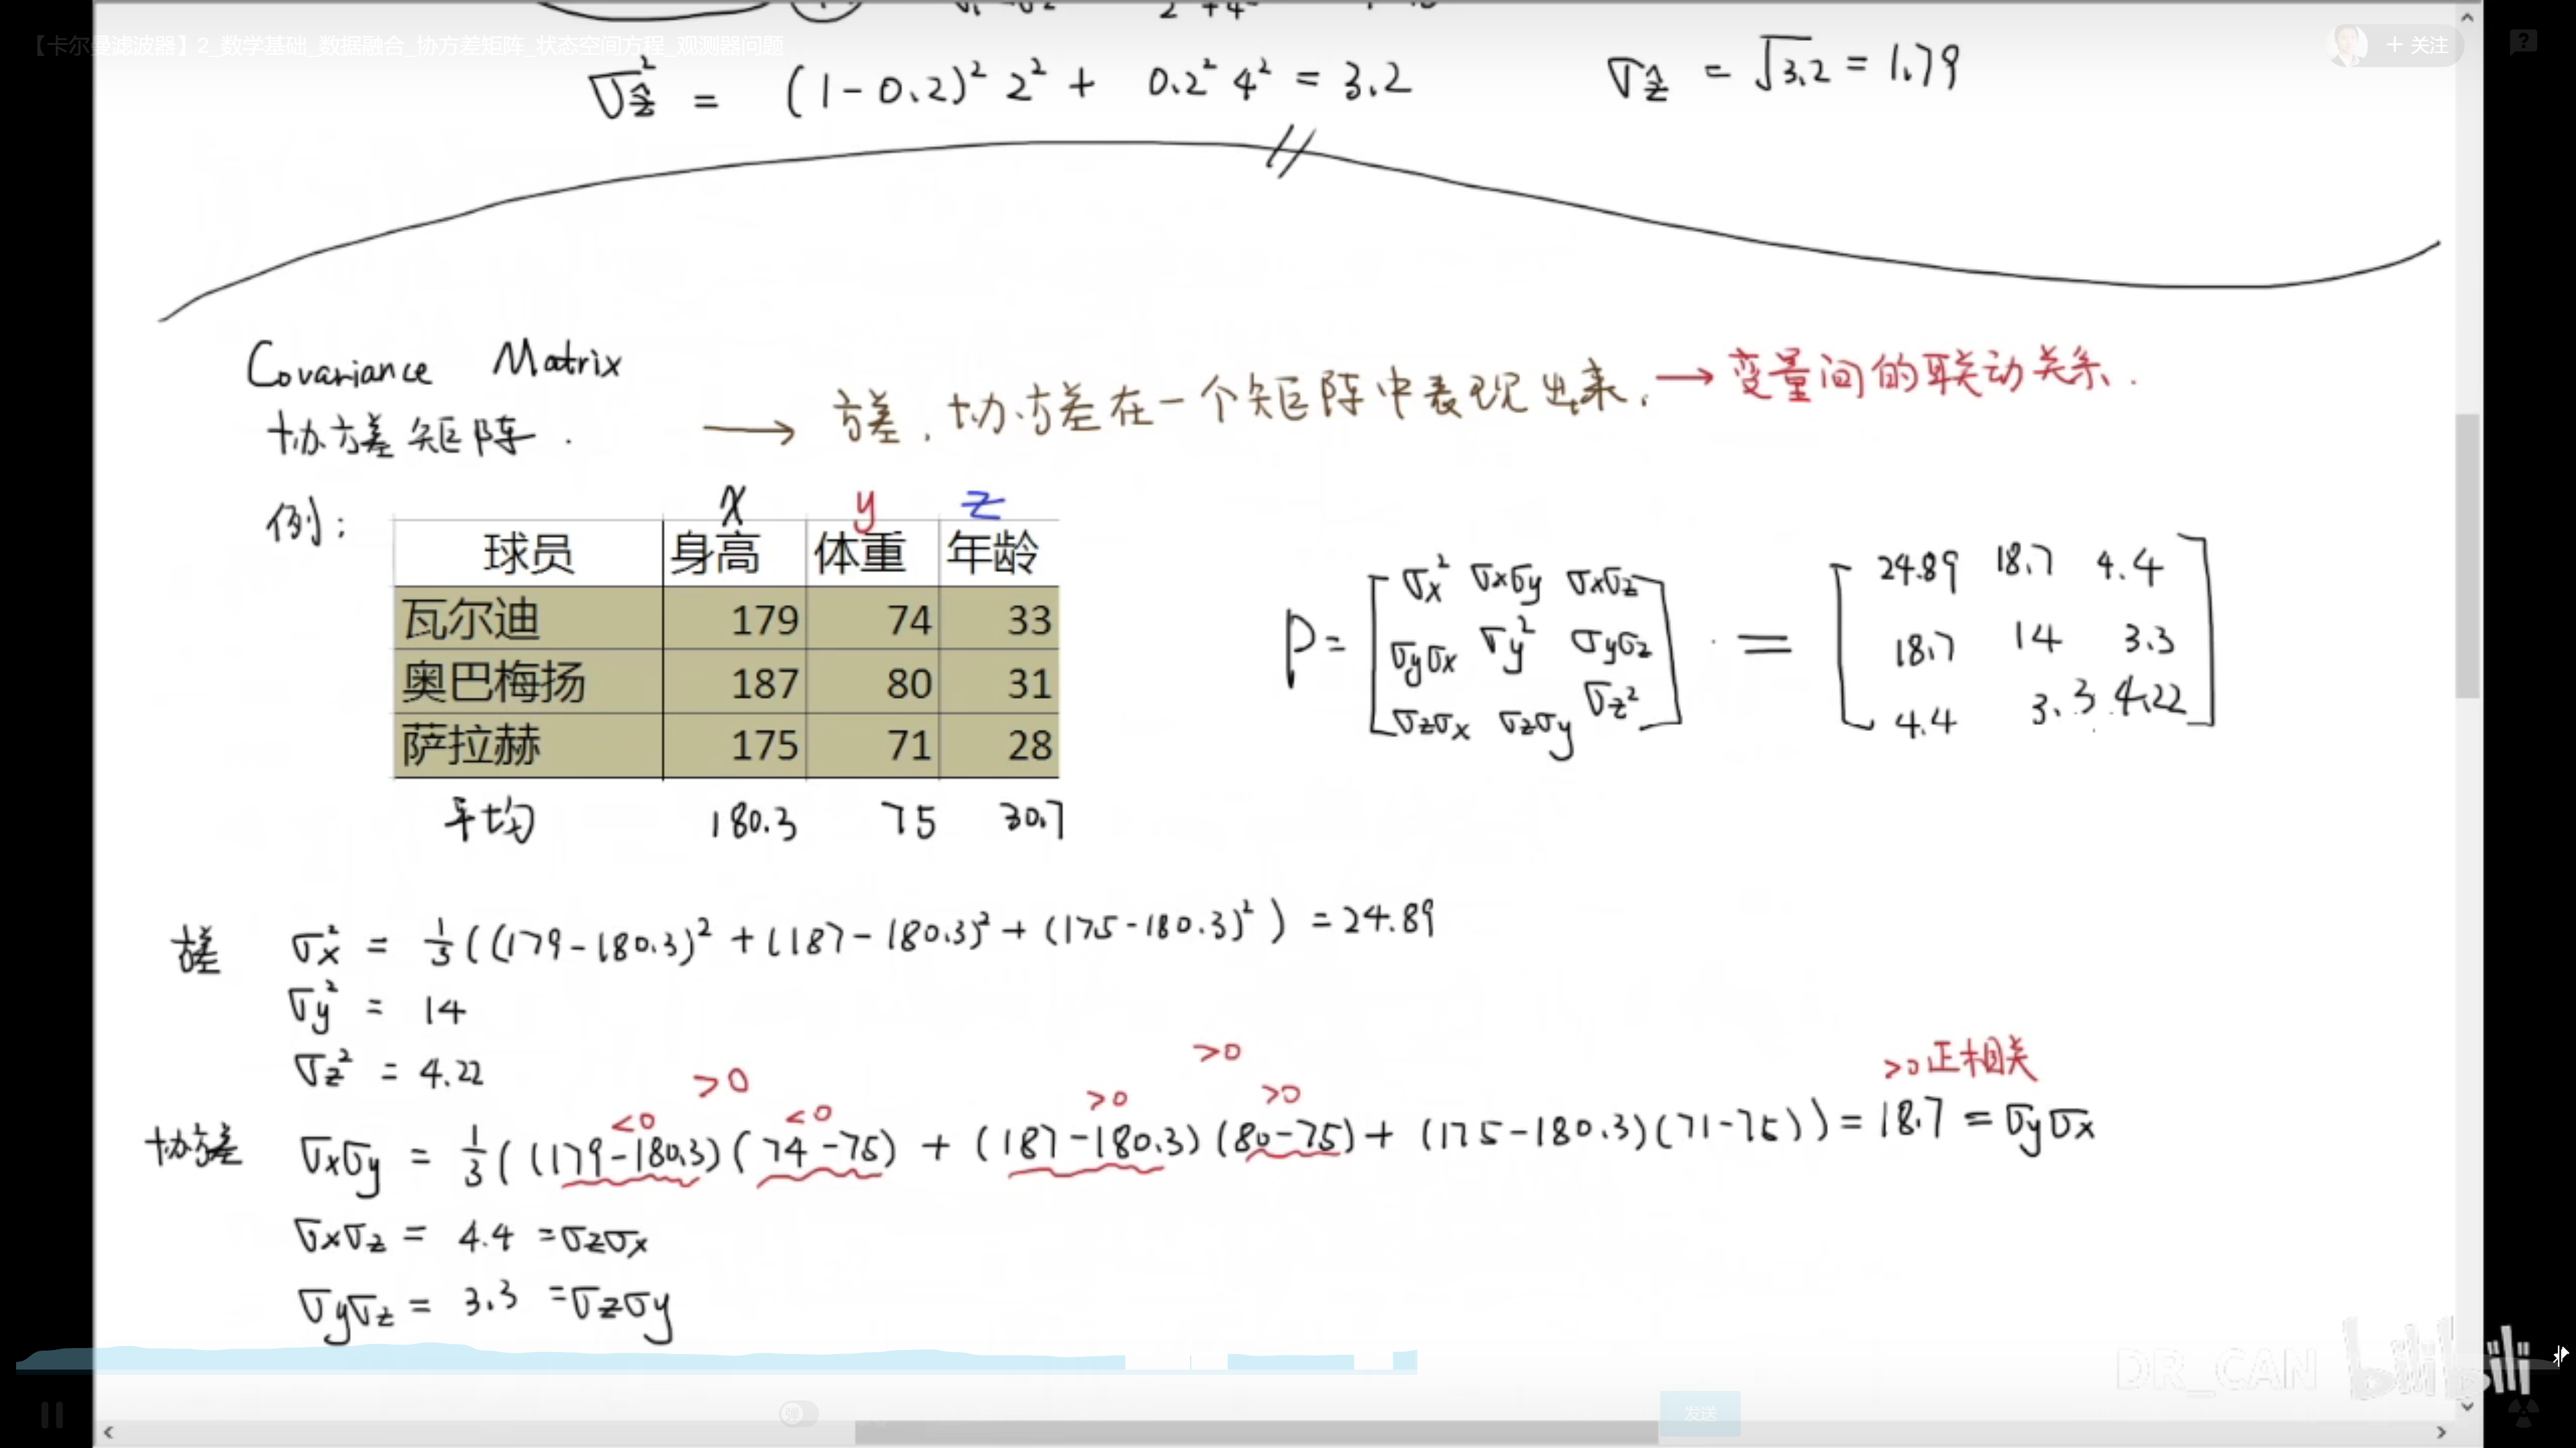 【卡尔曼滤波器】2_数学基础_数据融合_协方差矩阵_状态空间方程_观测器问题
+ 关注
σẑ² = (1-0.2)² 2² + 0.2² 4² = 3.2
σẑ = √3.2 = 1.79
Covariance Matrix
协方差矩阵.
→ 方差,协方差在一个矩阵中表现出来. → 变量间的联动关系.
例:
x y z
球员 身高 体重 年龄
瓦尔迪 179 74 33
奥巴梅扬 187 80 31
萨拉赫 175 71 28
平均 180.3 75 30.7
P = [σx² σxσy σxσz = [24.89 18.7 4.4
σyσx σy² σyσz 18.7 14 3.3
σzσx σzσy σz²] 4.4 3.3 4.22]
方差 σx² = 1/3((179-180.3)² + (187-180.3)² + (175-180.3)²) = 24.89
σy² = 14
σz² = 4.22
>0 >0 >0正相关
<0 <0 >0 >0
协方差 σxσy = 1/3((179-180.3)(74-75) + (187-180.3)(80-75) + (175-180.3)(71-75)) = 18.7 = σyσx
σxσz = 4.4 = σzσx
σyσz = 3.3 = σzσy
DR_CAN bilibili
弹
发送